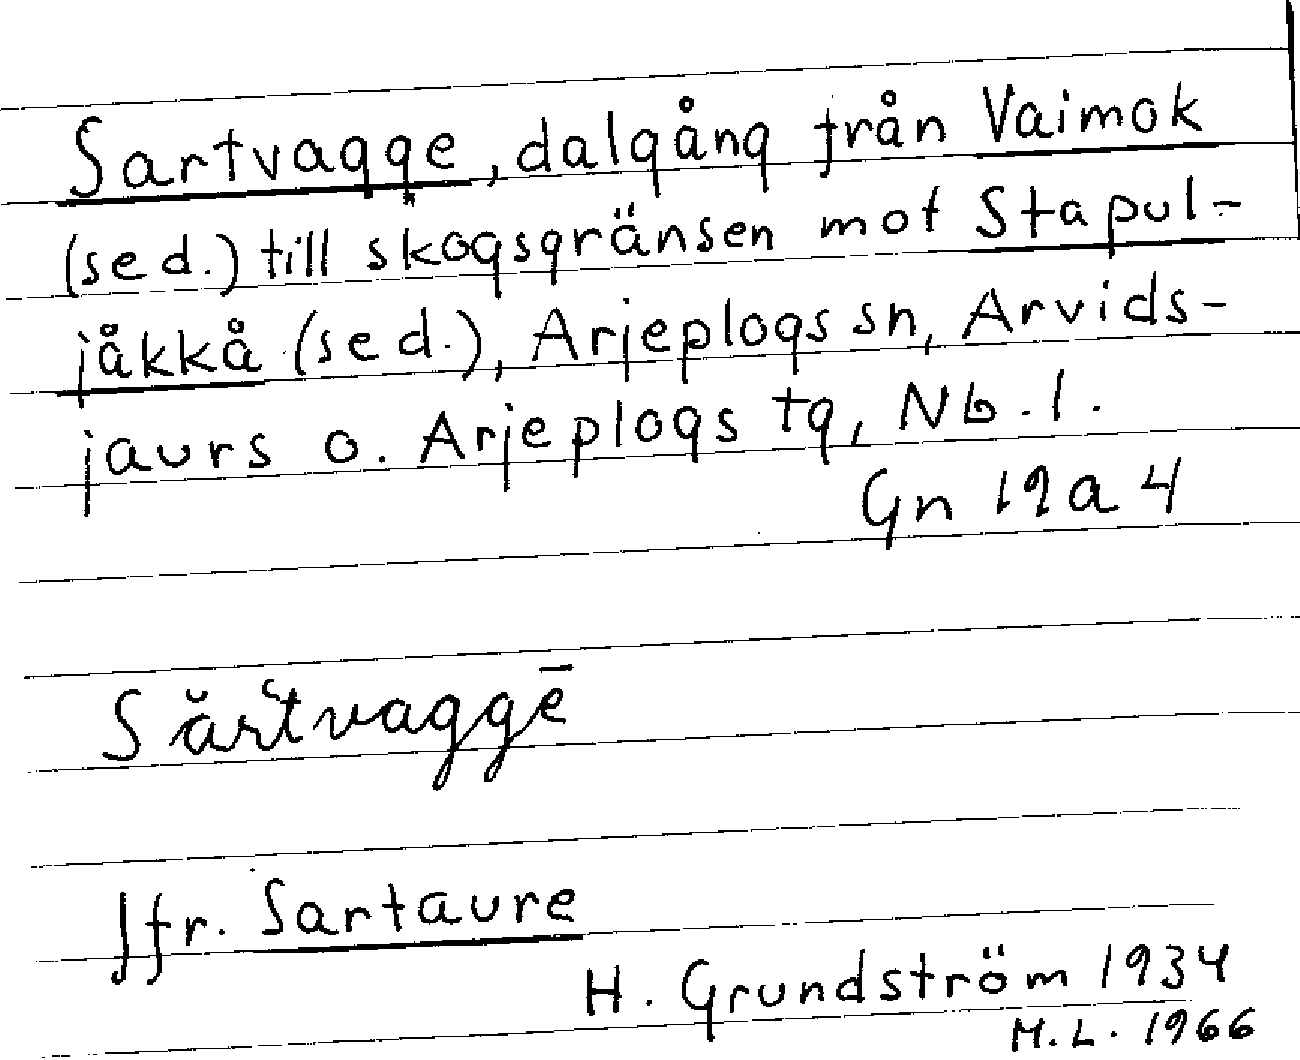 Sartvagge, dalgång från Vaimok
(sed.) till skogsgränsen mot Stapul-
jåkkå (sed.), Arjeplogs sn, Arvids-
jaurs o. Arjeplogs tg, Nb.l.
Gn 19a4
Sărt̔vaggē
Jfr. Sartaure
H. Grundström 1934
M.L. 1966